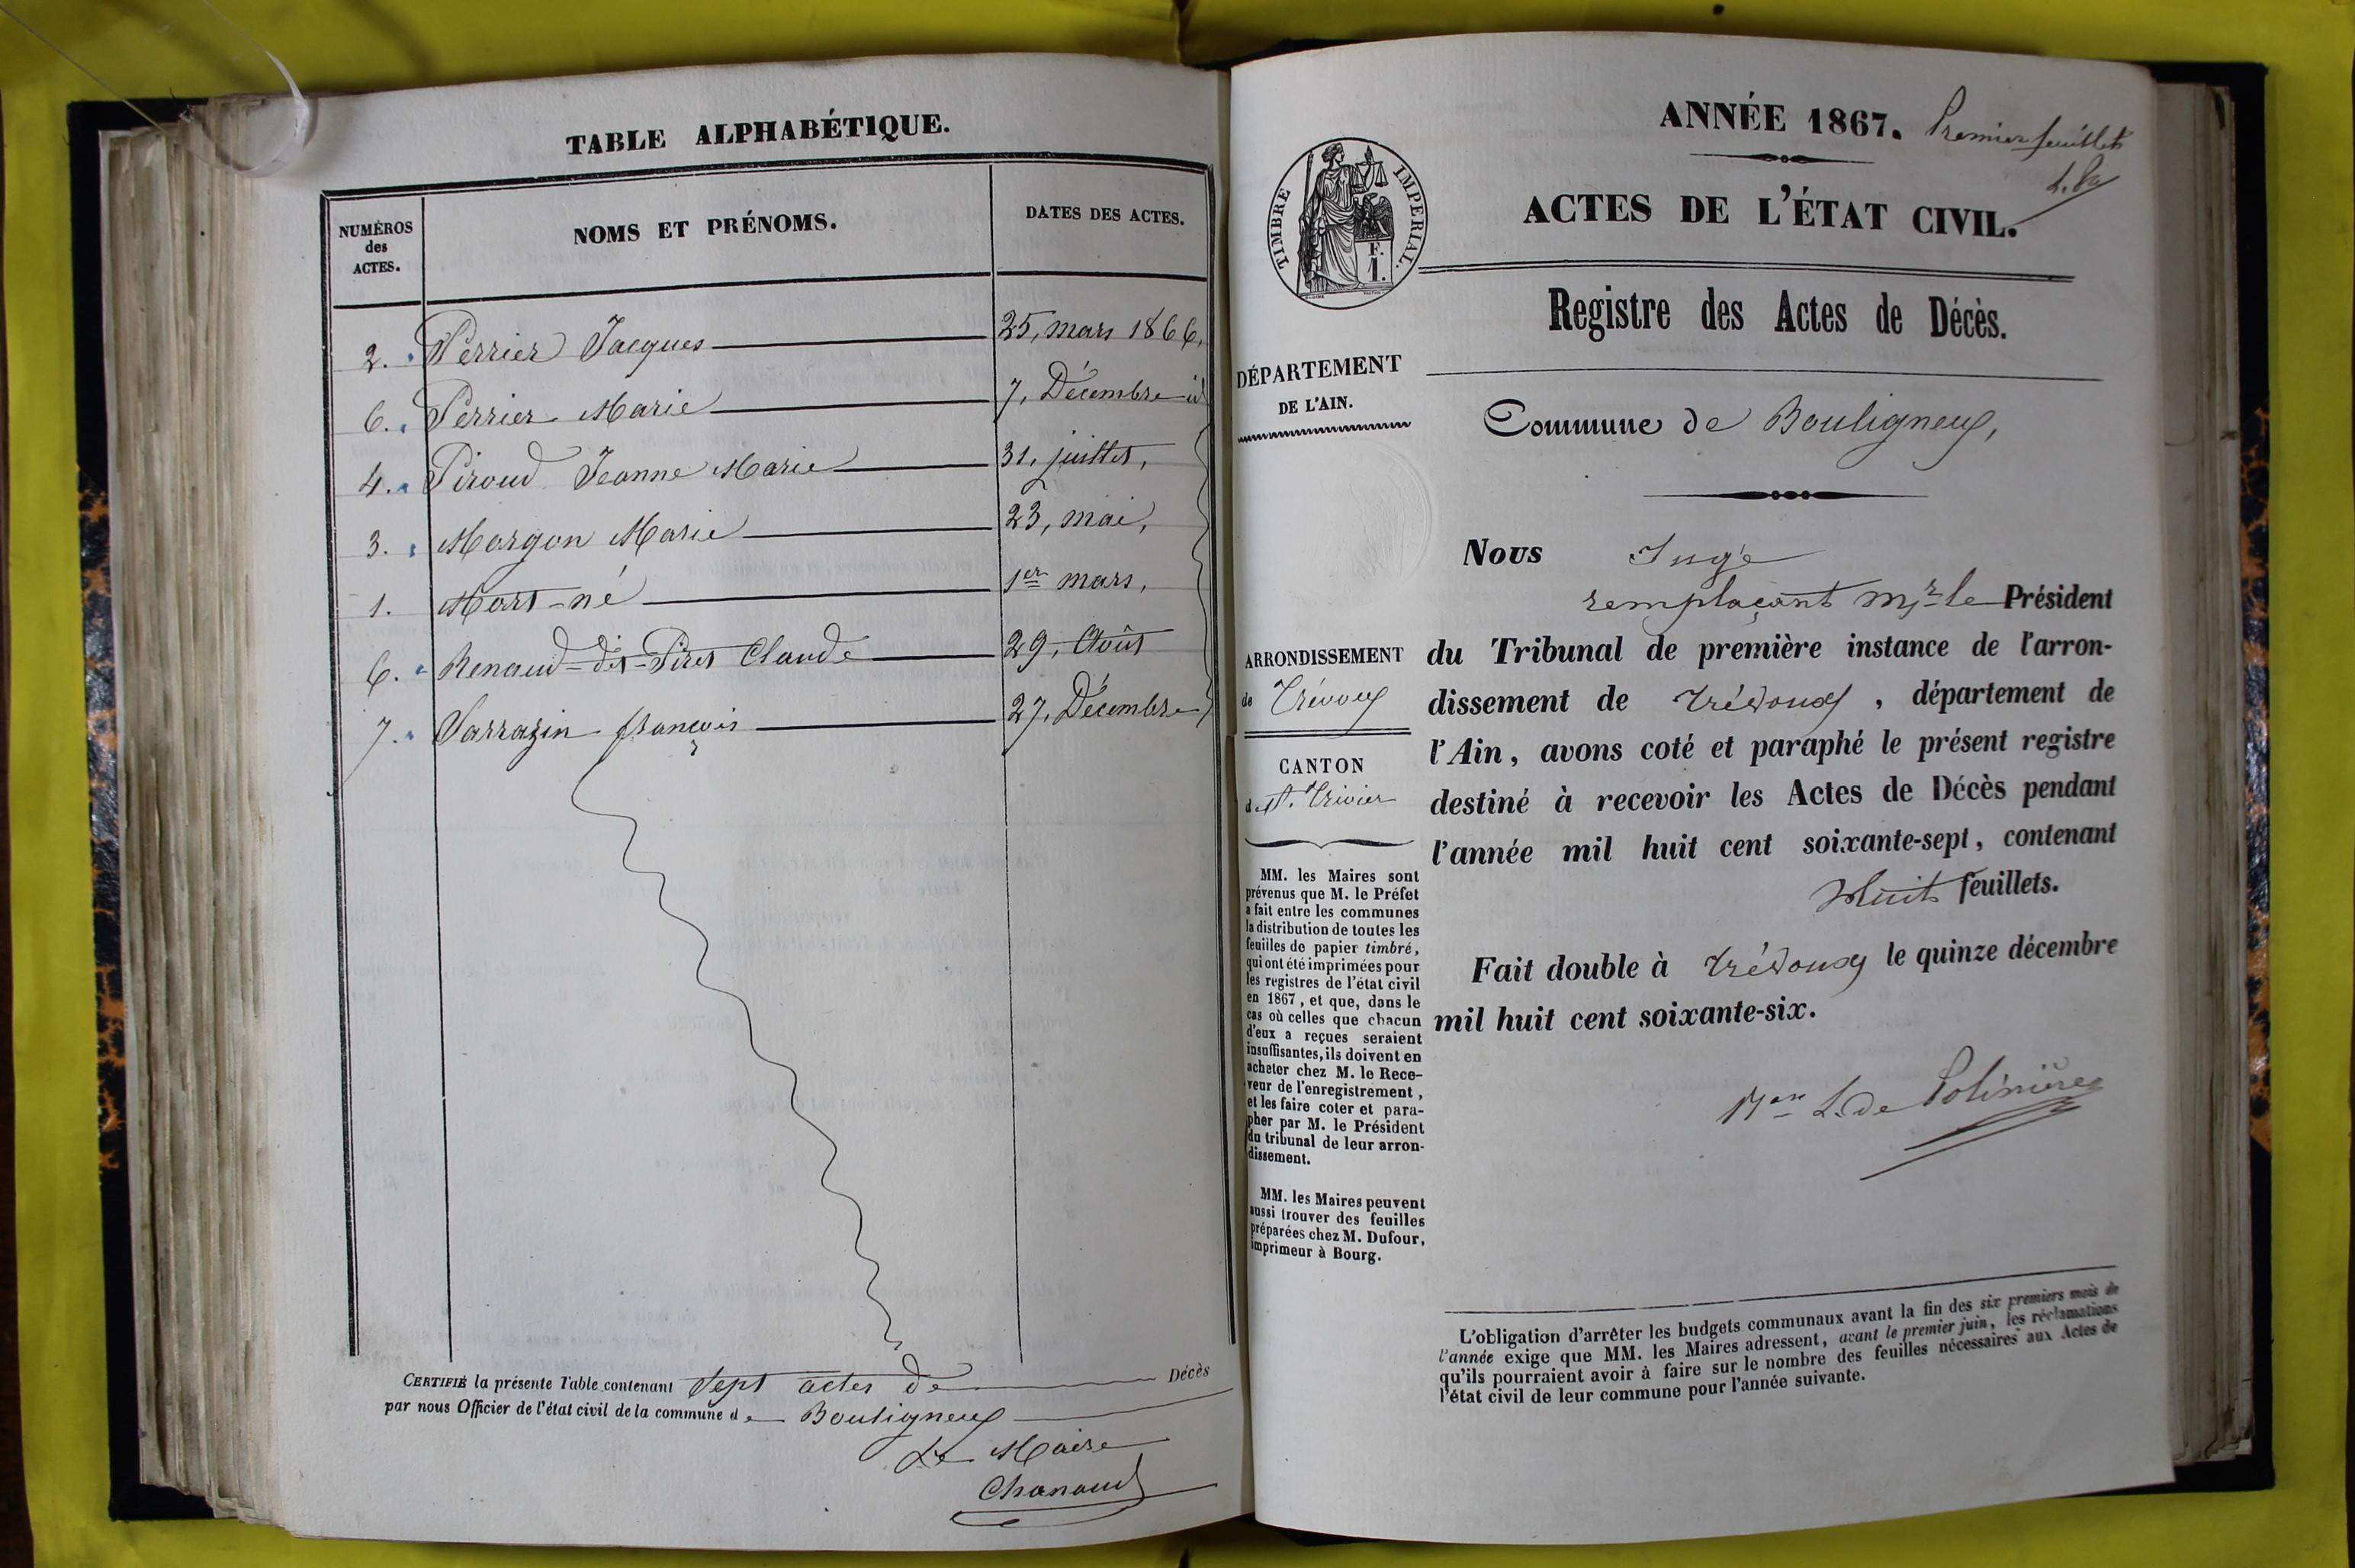 TABLE ALPHABÉTIQUE.
NUMÉROS
des
ACTES.
NOMS ET PRÉNOMS.
DATES DES ACTES.
2. Perrier Jacques 25, mars 1866,
6. Perrier Marie 7, Décembre id
4. Piroud Jeanne Marie 31, juillet,
3. Morgon Marie 23, mai,
1. Mort-né 1er mars,
6. Renaud-dit-Piret Claude 29, Août
7. Sarrazin françois 27, Décembre
CERTIFIÉ la présente Table contenant Sept actes de Décès
par nous Officier de l'état civil de la commune de Bouligneux
Le Maire
Chanaud
ANNÉE 1867. Premier feuillet
ACTES DE L'ÉTAT CIVIL.
TIMBRE IMPERIAL.
F.
1.
Registre des Actes de Décès.
DÉPARTEMENT
DE L'AIN.
Commune de Bouligneux,
ARRONDISSEMENT
de Trévoux
CANTON
de St. Trivier
MM. les Maires sont
prévenus que M. le Préfet
a fait entre les communes
la distribution de toutes les
feuilles de papier timbré,
qui ont été imprimées pour
les registres de l'état civil
en 1867, et que, dans le
cas où celles que chacun
d'eux a reçues seraient
insuffisantes, ils doivent en
acheter chez M. le Rece-
veur de l'enregistrement,
et les faire coter et para-
pher par M. le Président
du tribunal de leur arron-
dissement.
MM. les Maires peuvent
aussi trouver des feuilles
préparées chez M. Dufour,
imprimeur à Bourg.
Nous Juge
remplaçant Mr le Président
du Tribunal de première instance de l'arron-
dissement de Trévoux, département de
l'Ain, avons coté et paraphé le présent registre
destiné à recevoir les Actes de Décès pendant
l'année mil huit cent soixante-sept, contenant
huit feuillets.
Fait double à Trévoux le quinze décembre
mil huit cent soixante-six.
L. de Polinière
L'obligation d'arrêter les budgets communaux avant la fin des six premiers mois de
l'année exige que MM. les Maires adressent, avant le premier juin, les réclamations
qu'ils pourraient avoir à faire sur le nombre des feuilles nécessaires aux Actes de
l'état civil de leur commune pour l'année suivante.